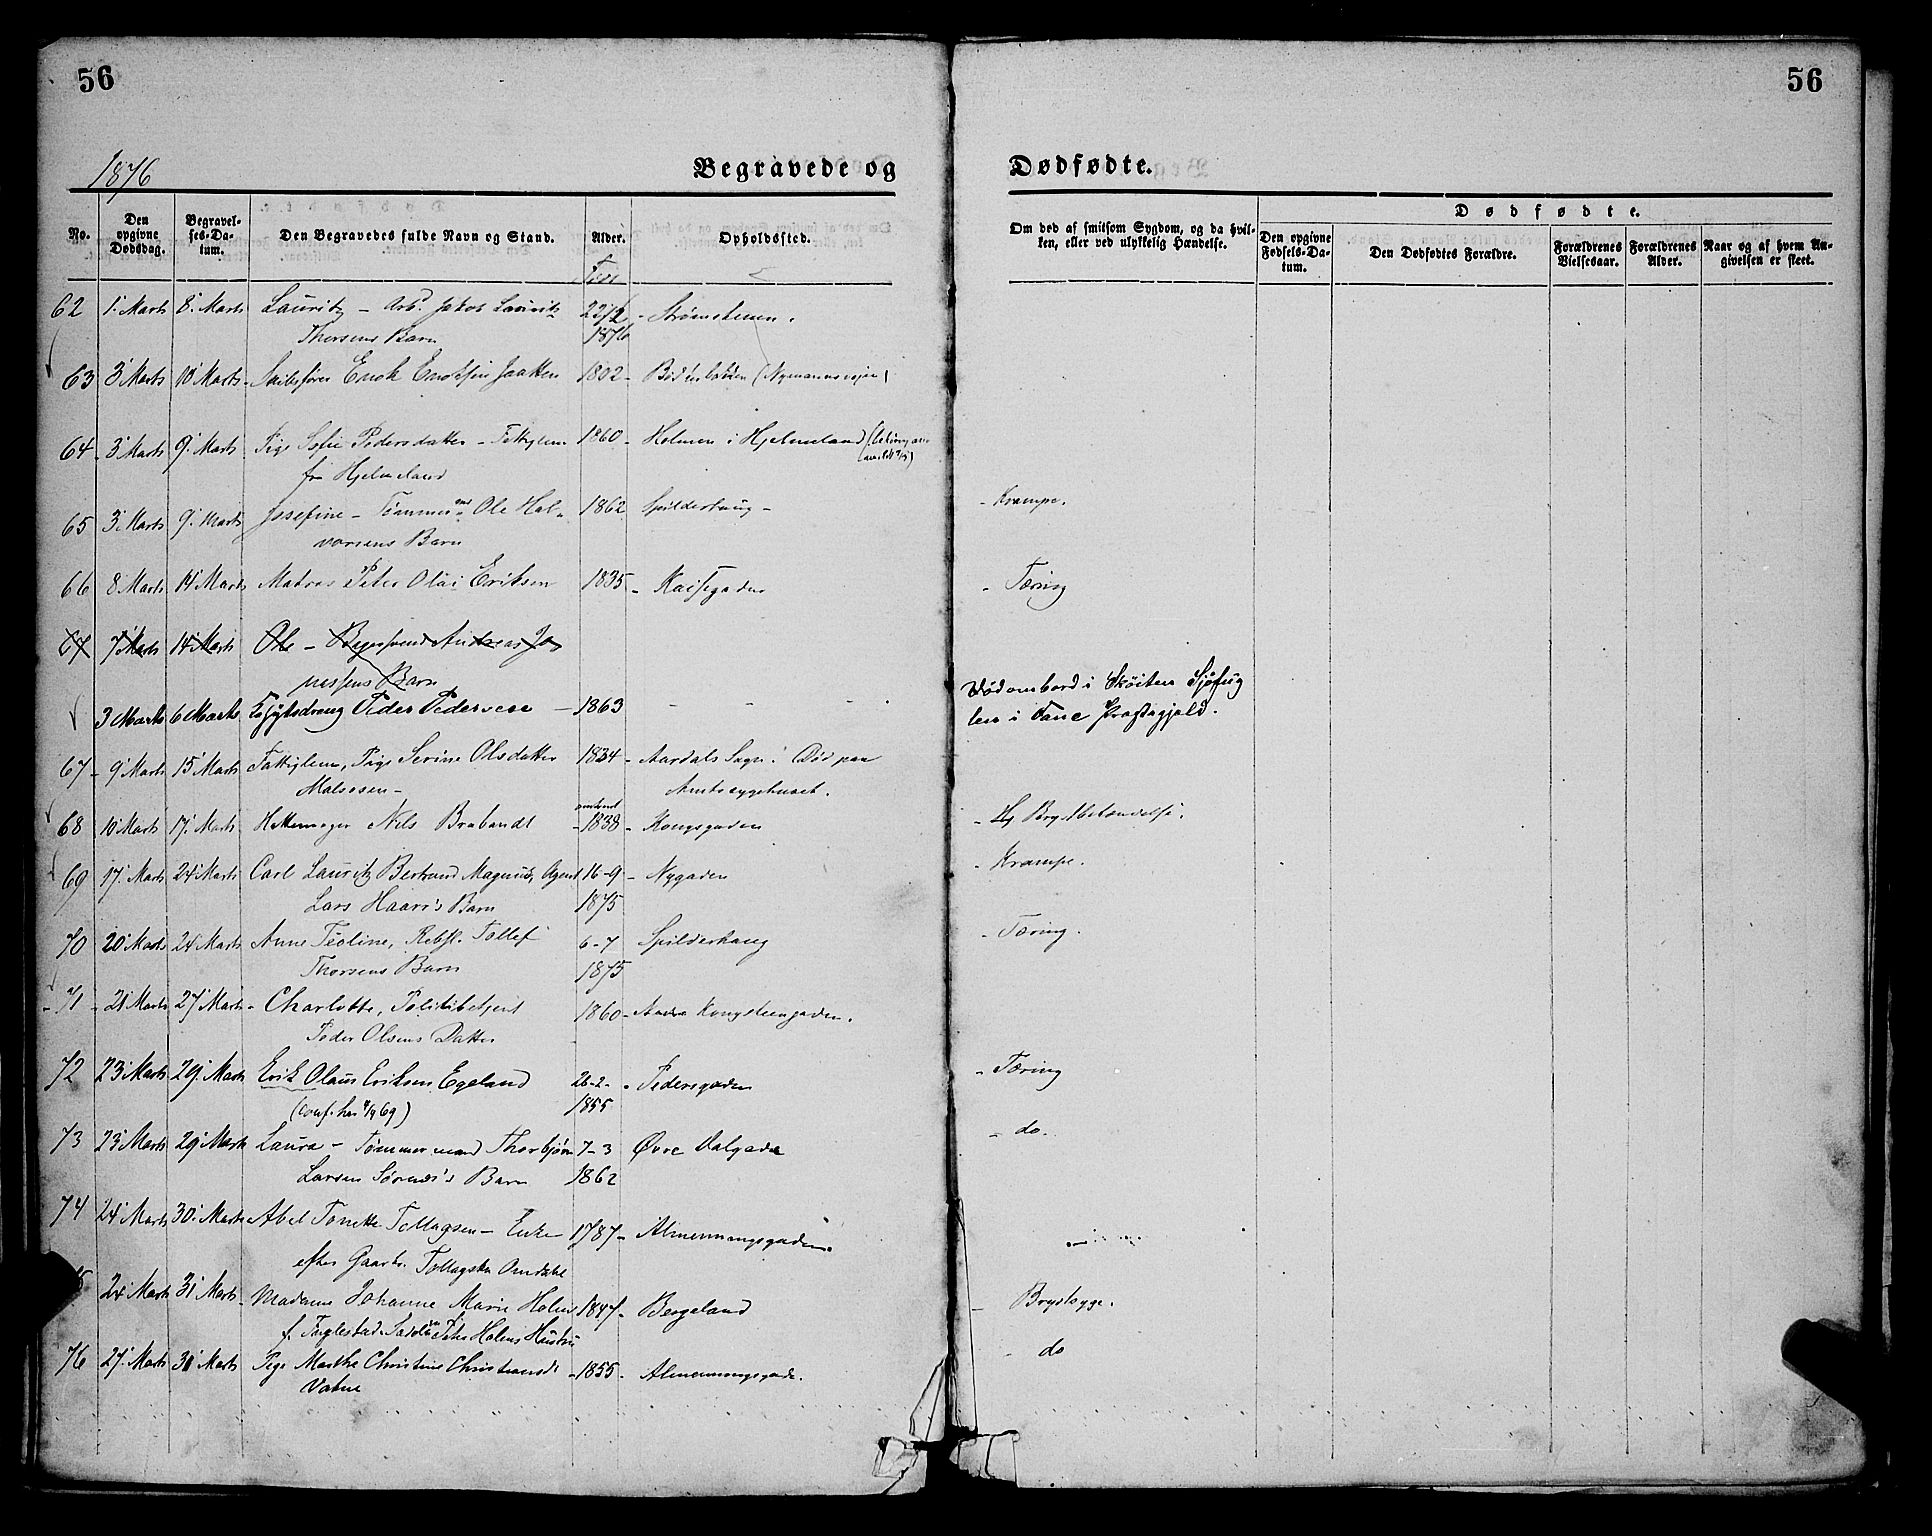 56
56
1876
Begravede og
Dødfødte.
No.
Den opgivne Dødsdag.
Begravelses-Datum.
Den Begravedes fulde Navn og Stand.
Alder.
Opholdsted.
Om død af smitsom Sygdom, og da hvilken, eller ved ulykkelig Hændelse.
Dødfødte.
Den opgivne Fødsels-Datum.
Den Dødfødtes Forældre.
Forældrenes Vielsesaar.
Forældrenes Alder.
Naar og af hvem Angivelsen er skeet.
62 1. Marts 8. Marts Lauritz – Arb. Jakob Lauritz 22/2 Strømstenen.
Thorsens Barn 1876
63 3 Marts 10 Marts Skibsfører Enok Enoksen 1802 (Nymannsvejen)
64 3 Marts 9. Marts Pige Sofie Pedersdatter – Fattiglem 1860 Holmen i Hjelmeland
fra Hjelmeland
65 3. Marts 9. Marts Josefine – Tømmerm. Ole Hal- 1862 Spilderhaug – Krampe.
vorsens Barn
66 8 Marts 14 Marts Matros Peter Olai Eriksen 1835 – Tæring
67 7 Marts 14 Marts Ole – Bagersvend Andreas Jo
nessens Barn
3 Marts 6 Marts Peder Pedersen – 1863 – – – Død ombord i Skøiten Sjøfug
len i Fane Præstegjeld.
67 – 9 Marts 15 Marts Fattiglem, Pige Serine Olsdatter 1834 – Aardals Sogn. Død paa
Amtssygehuset.
68 10 Marts 17. Marts Hattemager Nils Brabandt omtrent 1838 – Kongsgaden – Brystbetændelse.
69 17. Marts 24 Marts Carl Lauritz Bertrand Magnus, Agent 16–9 – Nygaden – Krampe.
Lars Haarr's Barn 1875
70 20 Marts 24 Marts Anne Teoline, Rebsl. Tollef 6–7 Spilderhaug – Tæring.
Thorsens Barn 1875
71 – 21 Marts 27 Marts – Charlotte, Politibetjent 1860 –
Peder Olsens Datter
72 23 Marts 29. Marts Erik Olaus Eriksen Egeland 26–2– Pedersgaden – Tæring
1855
73 23 Marts 29 Marts Laura – Tømmermand Thorbjørn 7–3 Øvre Dalgade – do.
Larsen Barn 1862
74 24 Marts 30. Marts Abel Tonette Tollagsen – Enke 1787 – Almenningsgaden
efter Gaarbr. Tollag Omdahl
24 Marts 31 Marts – Madame Johanne Marie Holm 1847 – Bergeland – Brystsyge.
76 27. Marts 31 Marts Pige Marthe Christine Christiansdt. – 1855 – Almenningsgade. – do
Vatne